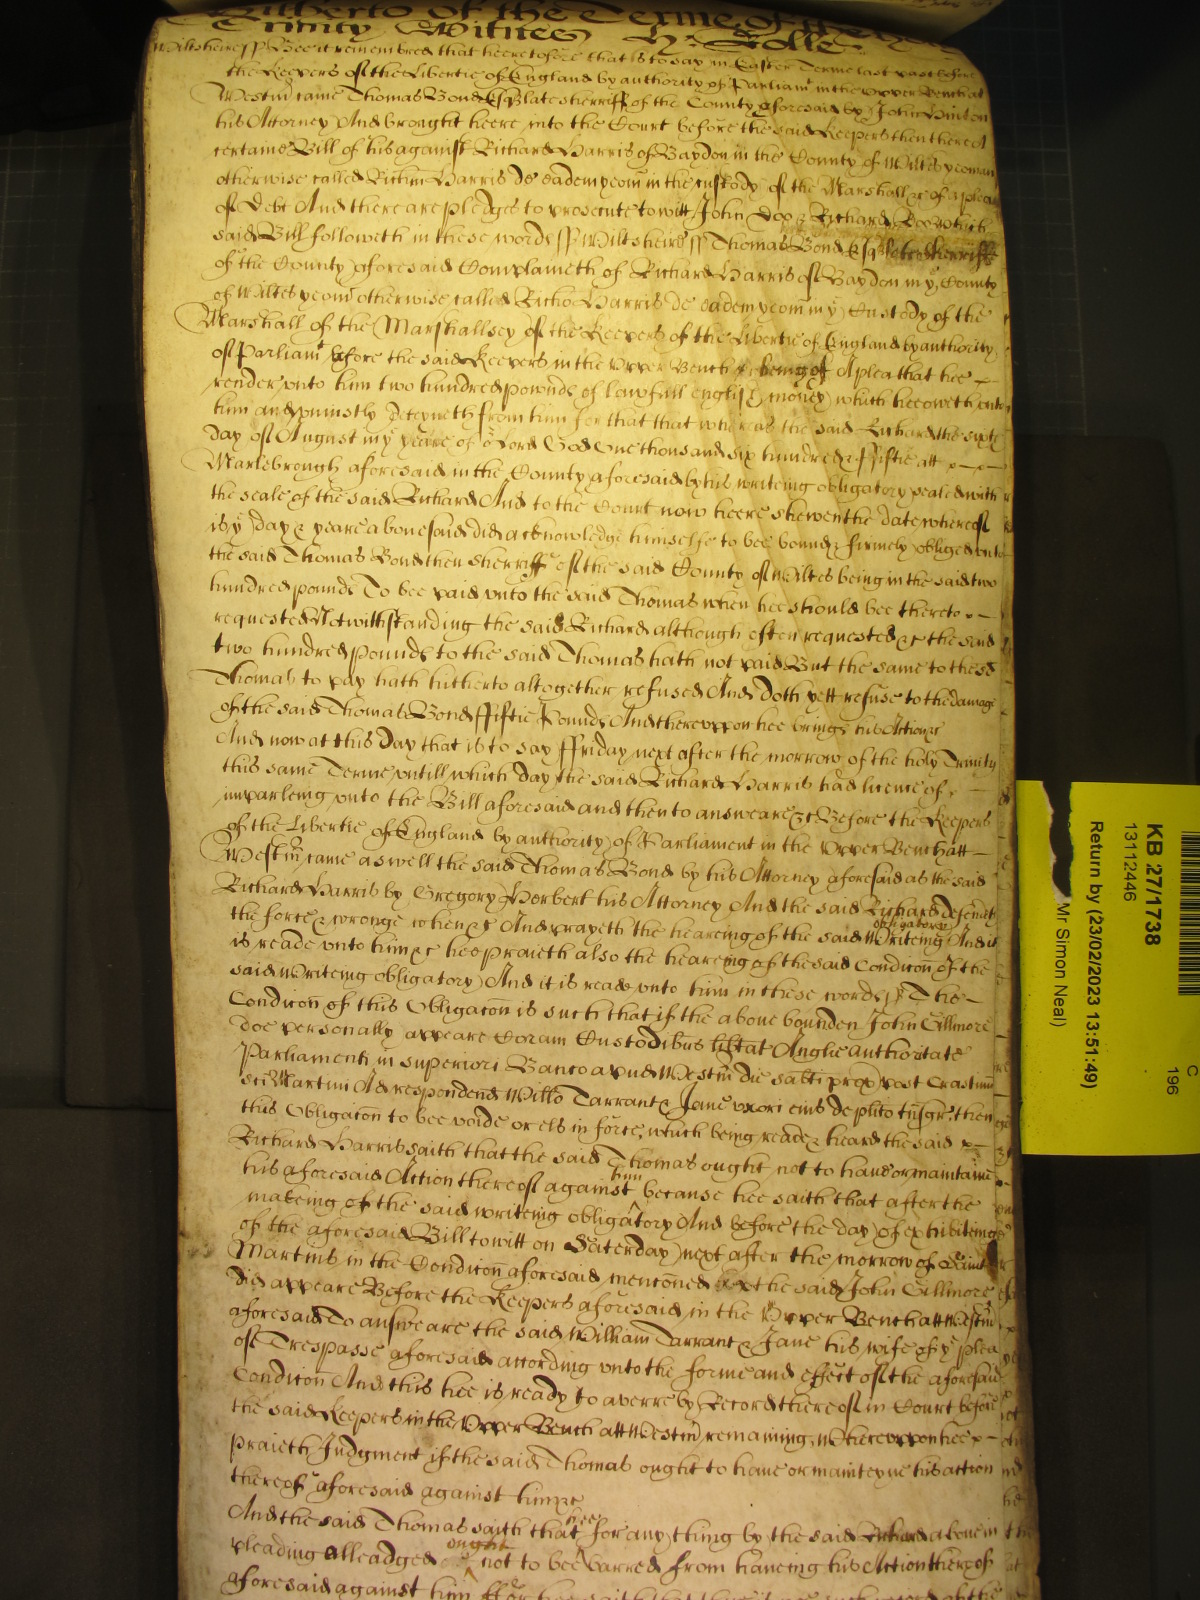 of the Terme of
Trinity Witnes H: Rolle
Wiltsheire ss Bee it remembred that heeretofore that is to say in Easter Terme last past before
the Keepers of the Libertie of England by authority of Parliamt in the upper Bench at
Westmr came Thomas Bond Esqr late sherriff of the County aforesaid by John Hinton
his Attorney And brought heere into the Court before the said Keepers then there A
certaine Bill of his against Richard Harris of Baydon in the County of Wiltes yeoman
otherwise called Richm Harris de eadem yeom in the custody of the Marshall &c of a plea
of Debt And there are pledges to prosecute to witt John Doo & Richard Roo which
said Bill followeth in these words ss Wiltsheire ss Thomas Bond Esqr late sherriffe
of the County aforesaid Complaineth of Richard Harris of Baydon in ye County
of Wiltes yeom otherwise called Richm Harris de eadem yeom in ye Custody of the
Marshall of the Marshallsey of the Keepers of the Libertie of England by authority
of Parliamt before the said Keepers in the Upper Bench being of A plea that hee
render unto him two hundred pownds of lawfull english money which hee oweth unto
him and uniustly deteyneth from him for that that whereas the said Richard the sixth
day of August in ye yeare of or Lord God One thousand six hundred & ffiftie att
Marlebrough aforesaid in the County aforesaid by his writeing obligatory sealed with
the seale of the said Richard And to the Court now heere shewen the date whereof
is ye day & yeare abovesaid did acknowledge himselfe to bee bound & firmely obliged unto
the said Thomas Bond then sherriffe of the said County of Wiltes being in the said two
hundred pounds To bee paid unto the said Thomas when hee should bee thereto
requested Notwithstanding the said Richard although often requested &c the said
two hundred pounds to the said Thomas hath not paid But the same to the sd
Thomas to pay hath hitherto altogether refused And doth yett refuse to the damage
of the said Thomas Bond ffiftie Pounds And thereuppon hee brings his Action &c
And now at this day that is to say ffriday next after the morrow of the holy Trinity
this same Terme untill which day the said Richard Harris had licence of
imparleing unto the Bill aforesaid and then to answeare &c Before the Keepers
of the Libertie of England by authority of Parliament in the Upper Bench att
Westmr came aswell the said Thomas Bond by his Attorney aforesaid as the said
Richard Harris by Gregory Herbert his Attorney And the said Richard defendeth
the force & wronge when &c And prayeth the heareing of the said Writeing obligatory And it
is reade unto him &c hee praieth also the heareing of the said Condicon of the
said writeing obligatory And it is read unto him in these words ss The
Condicon of this Obligacon is such that if the above bounden John Gillmore
doe personally appeare Coram Custodibus libtat Anglie authoritate
Parliamenti in superiori Banco apud Westm die sabti prox post Crastinu
sci Martini Ad respondend Willo Tarrant & Jane uxori eius de plito tnsgr then
this Obligacon to bee voide or els in force, which being reade & heard the said
Richard Harris saith that the said Thomas ought not to have or maintaine
his aforesaid Action thereof against him because hee saith that after the
makeing of the said writeing obligatory And before the day of exhibiteing
of the aforesaid Bill to witt on Saterday next after the morrow of Saint
Martins in the Condicon aforesaid menconed the said John Gillmore
did appeare Before the Keepers aforesaid in the Upper Bench att Westmr
aforesaid To answeare the said William Tarrant & Jane his wife of ye plea
of Trespasse aforesaid according unto the forme and effect of the aforesaid
Condicon And this hee is ready to averre by Record thereof in Court before
the said Keepers in the Upper Bench att Westmr remaining, Whereuppon hee
praieth Judgment if the said Thomas ought to have or mainteyne his action
thereof aforesaid against him &c
And the said Thomas saith that hee for any thing by the said Richard above in
pleading alleadged ought not to bee barred from haveing his Action thereof
aforesaid against him ffor hee saith that
KB 27/1738
13112446
Return by (23/02/2023 13:51:49)
Mr Simon Neal)
C
196